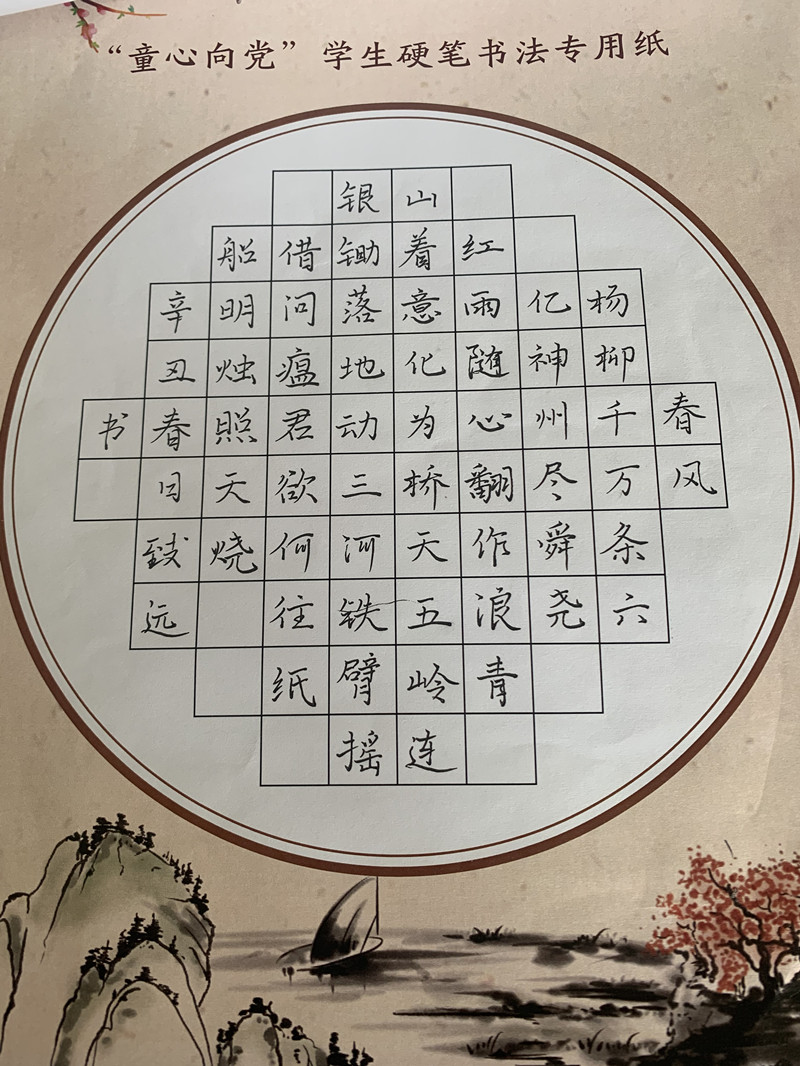 “童心向党”学生硬笔书法专用纸
春风
杨柳千万条六
亿神州尽舜尧
红雨随心翻作浪青
山着意化为桥天五岭连
银锄落地动三河铁臂摇
借问瘟君欲何往纸
船明烛照天烧
辛丑春日致远
书